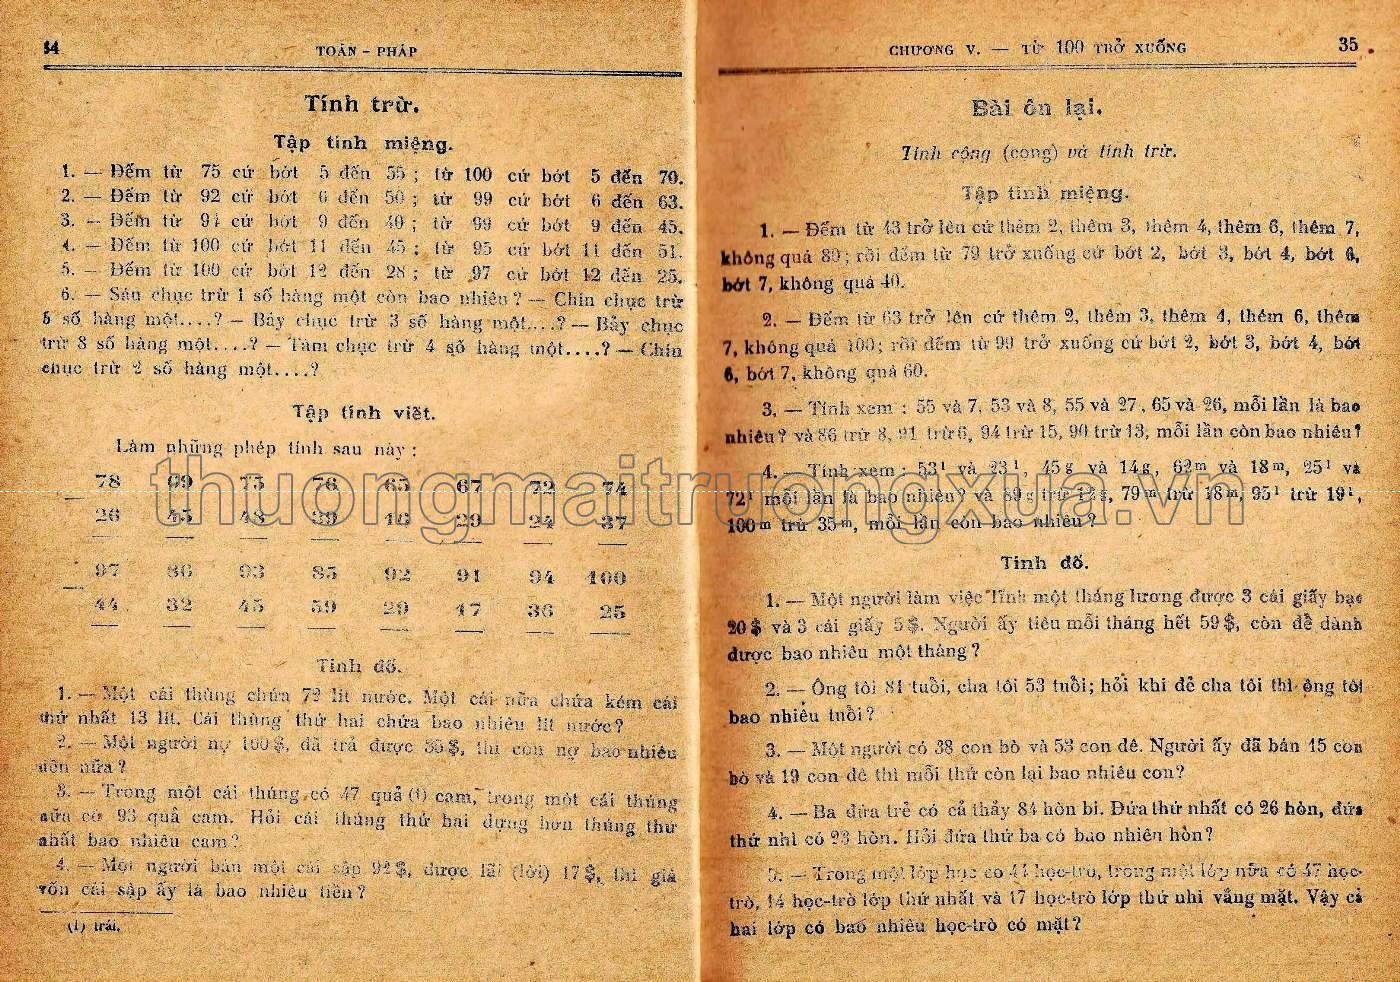 TOÁN - PHÁP
Tính trừ.
Tập tính miệng.
1. — Đếm từ 75 cứ bớt 5 đến 55 ; từ 100 cứ bớt 5 đến 70.
2. — Đếm từ 92 cứ bớt 6 đến 50 ; từ 99 cứ bớt 6 đến 63.
3. — Đếm từ 94 cứ bớt 9 đến 40 ; từ 99 cứ bớt 9 đến 45.
4. — Đếm từ 100 cứ bớt 11 đến 45 ; từ 95 cứ bớt 11 đến 51.
5. — Đếm từ 100 cứ bớt 12 đến 28 ; từ 97 cứ bớt 12 đến 25.
6. — Sáu chục trừ 1 số hàng một còn bao nhiêu ? — Chín chục trừ
5 số hàng một....? — Bảy chục trừ 3 số hàng một....? — Bảy chục
trừ 8 số hàng một....? — Tám chục trừ 4 số hàng một....? — Chín
chục trừ 2 số hàng một....?
Tập tính viết.
Làm những phép tính sau này :
78 69 75 76 65 67 72 74
26 45 48 39 29 24 37
97 86 93 85 92 91 94 100
44 32 45 59 29 47 36 25
Tính đố.
1. — Một cái thùng chứa 72 lít nước. Một cái nữa chứa kém cái
thứ nhất 13 lít. Cái thùng thứ hai chứa bao nhiêu lít nước?
2. — Một người nợ 100$, đã trả được thì còn nợ bao nhiêu
tiền nữa ?
3. — Trong một cái thúng có 47 quả (1) cam, trong một cái thúng
nữa có 93 quả cam. Hỏi cái thúng thứ hai đựng hơn thúng thứ
nhất bao nhiêu cam ?
4. — Một người bán một cái sập 92$, được lãi (lời) 17$, thì giá
vốn cái sập ấy là bao nhiêu tiền ?
(1) trái.
CHƯƠNG V. — TỪ 100 TRỞ XUỐNG 35
Bài ôn lại.
Tính cộng (cọng) và tính trừ.
Tập tính miệng.
1. — Đếm từ 43 trở lên cứ thêm 2, thêm 3, thêm 4, thêm 6, thêm 7,
không quá 89 ; rồi đếm từ 79 trở xuống cứ bớt 2, bớt 3, bớt 4, bớt 6,
bớt 7, không quá 40.
2. — Đếm từ 63 trở lên cứ thêm 2, thêm 3, thêm 4, thêm 6, thêm
7, không quá 100 ; rồi đếm từ 99 trở xuống cứ bớt 2, bớt 3, bớt 4, bớt
6, bớt 7, không quá 60.
3. — Tính xem : 55 và 7, 53 và 8, 55 và 27, 65 và 26, mỗi lần là bao
nhiêu ? và 86 trừ 8, 91 trừ 6, 94 trừ 15, 90 trừ 13, mỗi lần còn bao nhiêu ?
4. — Tính xem : 53l và 23l, 45g và 14g, 62m và 18m, 25l và
72l mỗi lần là bao nhiêu ? và 89g trừ 79m trừ 18m, 95l trừ 19l,
100m trừ 35m, mỗi lần còn bao nhiêu ?
Tính đố.
1. — Một người làm việc lĩnh một tháng lương được 3 cái giấy bạc
20$ và 3 cái giấy 5$. Người ấy tiêu mỗi tháng hết 59$, còn để dành
được bao nhiêu một tháng ?
2. — Ông tôi 81 tuổi, cha tôi 53 tuổi ; hỏi khi đẻ cha tôi thì ông tôi
bao nhiêu tuổi ?
3. — Một người có 38 con bò và 53 con dê. Người ấy đã bán 15 con
bò và 19 con dê thì mỗi thứ còn lại bao nhiêu con?
4. — Ba đứa trẻ có cả thảy 84 hòn bi. Đứa thứ nhất có 26 hòn, đứa
thứ nhì có 23 hòn. Hỏi đứa thứ ba có bao nhiên hòn ?
5. — Trong một lớp học có 44 học-trò, trong một lớp nữa có 47 học-
trò, 14 học-trò lớp thứ nhất và 17 học-trò lớp thứ nhì vắng mặt. Vậy cả
hai lớp có bao nhiêu học-trò có mặt ?
thuongmaitruongxua.vn